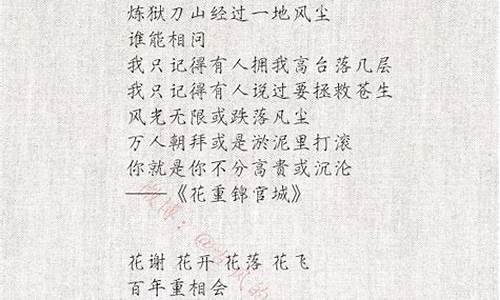 炼狱刀山经过一地风尘
谁能相问
我只记得有人拥我高台落几层
我只记得有人说过要拯救苍生
风光无限或跌落凡尘
万人朝拜或是淤泥里打滚
你就是你不分高贵或沉沦
——《花重锦官城》
花谢 花开 花落 花飞
百年重相会